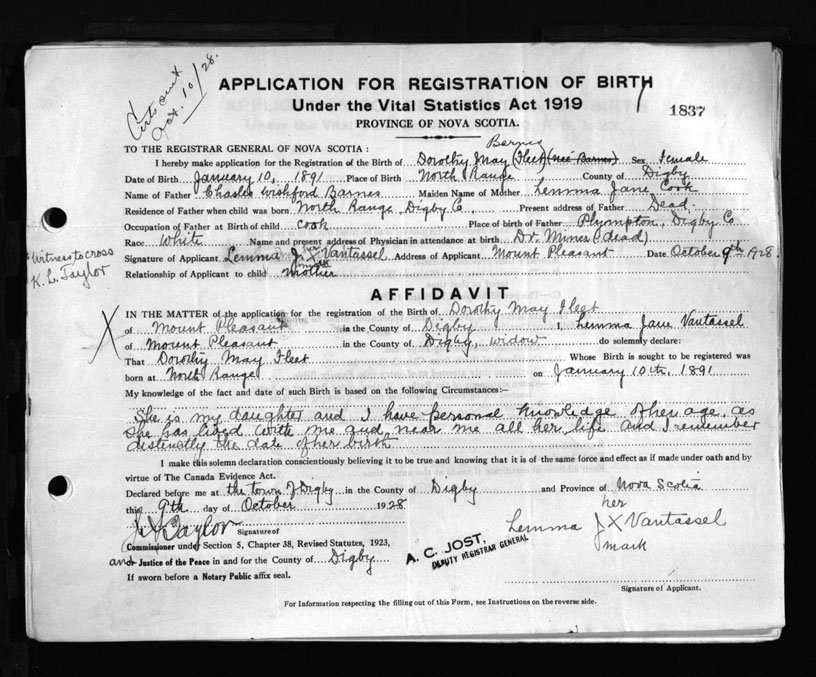 Certs sent.
Oct. 10/28.
APPLICATION FOR REGISTRATION OF BIRTH
Under the Vital Statistics Act 1919
1837
PROVINCE OF NOVA SCOTIA.
TO THE REGISTRAR GENERAL OF NOVA SCOTIA :
Barnes
I hereby make application for the Registration of the Birth of Dorothy May (Fleet) (née Barnes) Sex Female
Date of Birth January 10, 1891 Place of Birth North Range County of Digby
Name of Father Charles Wishford Barnes Maiden Name of Mother Lemma Jane Cook
Residence of Father when child was born North Range, Digby Co, Present address of Father Dead.
Occupation of Father at Birth of child Cook Place of birth of Father Plympton, Digby Co
Race White Name and present address of Physician in attendance at birth Dr. (dead)
Signature of Applicant Lemma J. her X mark Vantassel Address of Applicant Mount Pleasant Date October 9th 1928.
Relationship of Applicant to child Mother
Witness to cross
K. L. Taylor
AFFIDAVIT
IN THE MATTER of the application for the registration of the Birth of Dorothy May Fleet
of Mount Pleasant in the County of Digby I, Lemma Jane Vantassel
of Mount Pleasant in the County of Digby, widow do solemnly declare:
That Dorothy May Fleet Whose Birth is sought to be registered was
born at North Range on January 10th, 1891
My knowledge of the fact and date of such Birth is based on the following Circumstances:—
She is my daughter and I have personal knowledge of her age, as
she has lived with me and near me all her life and I remember
distinctly the date of her birth
I make this solemn declaration conscientiously believing it to be true and knowing that it is of the same force and effect as if made under oath and by
virtue of The Canada Evidence Act.
Declared before me at the town of Digby in the County of Digby and Province of Nova Scotia
this 9th day of October 1928
her
Lemma J X Vantassel
mark
Taylor Signature of
Commissioner under Section 5, Chapter 38, Revised Statutes, 1923,
and Justice of the Peace in and for the County of Digby
If sworn before a Notary Public affix seal.
A. C. JOST,
DEPUTY REGISTRAR GENERAL
Signature of Applicant.
For Information respecting the filling out of this Form, see Instructions on the reverse side.